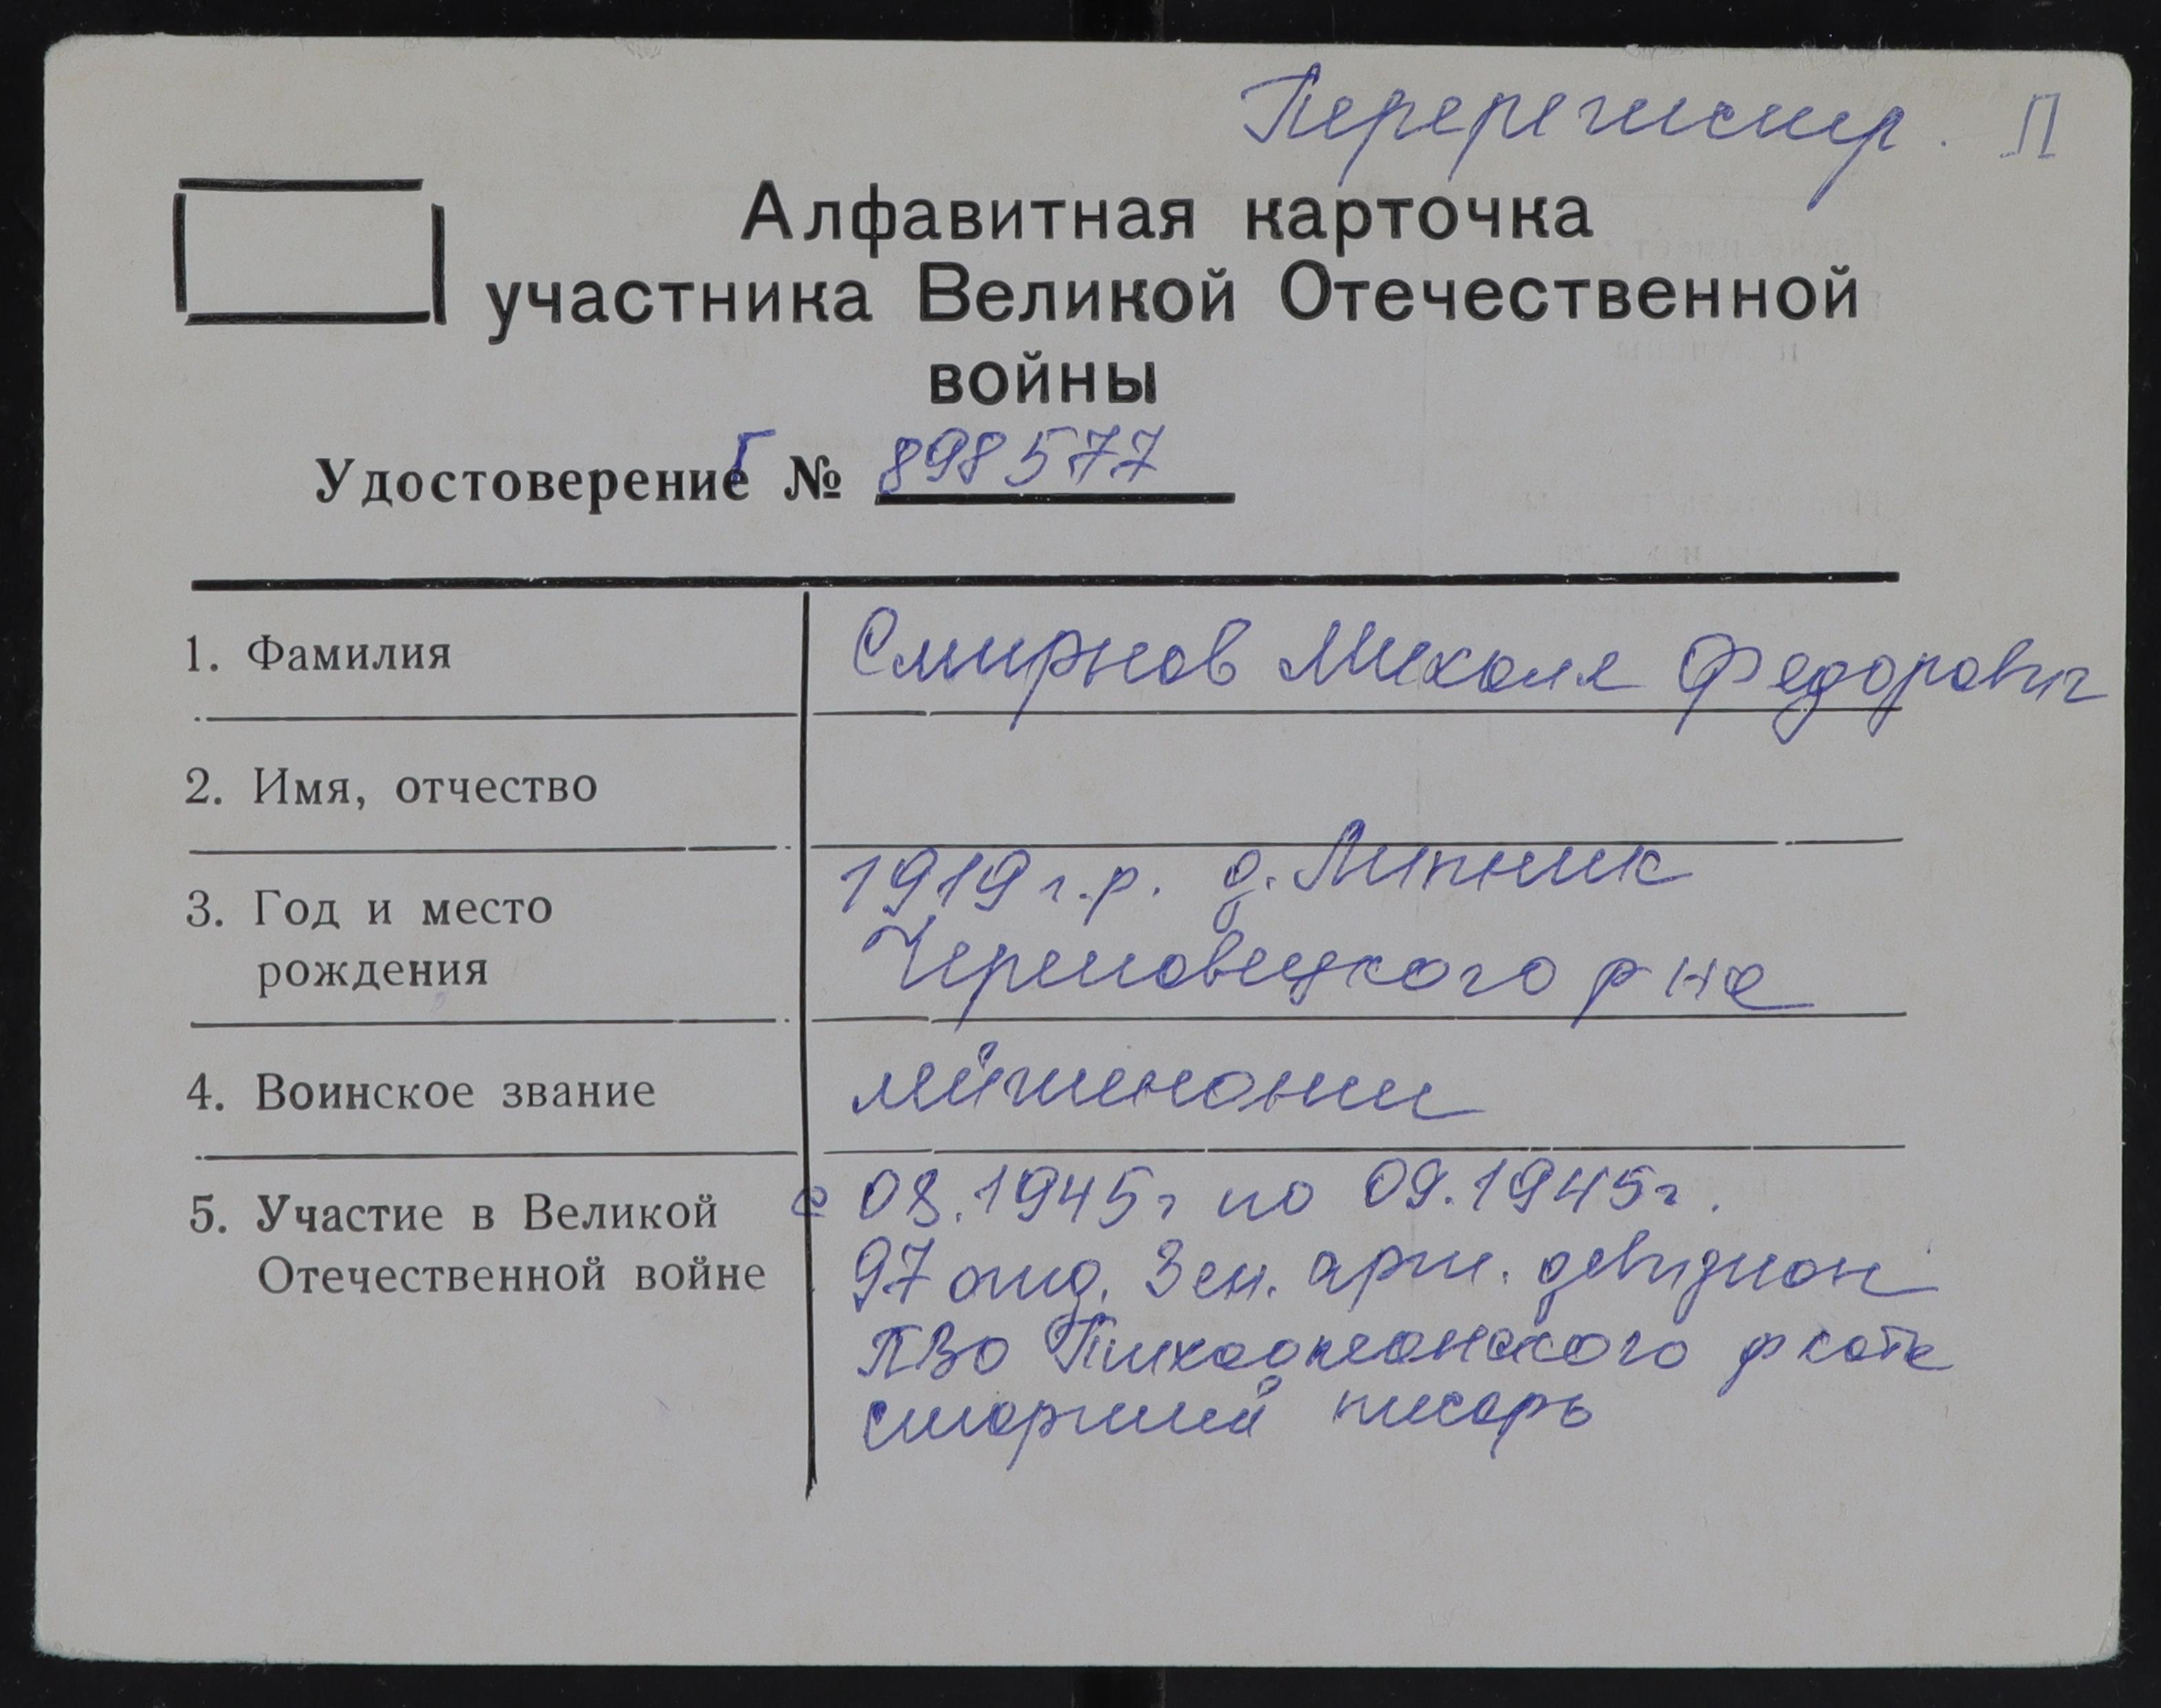 Перерегистр. П
Алфавитная карточка
участника Великой Отечественной
войны
Удостоверение Г № 898577
1. Фамилия Смирнов Михаил Федорович
2. Имя, отчество
3. Год и место 1919 г.р. д. Липник
рождения Череповецкого р-на
4. Воинское звание лейтенант
5. Участие в Великой с 08.1945г по 09.1945г.
Отечественной войне 97 отд. Зен. арт. дивизион
ПВО Тихоокеанского флота
старший писарь